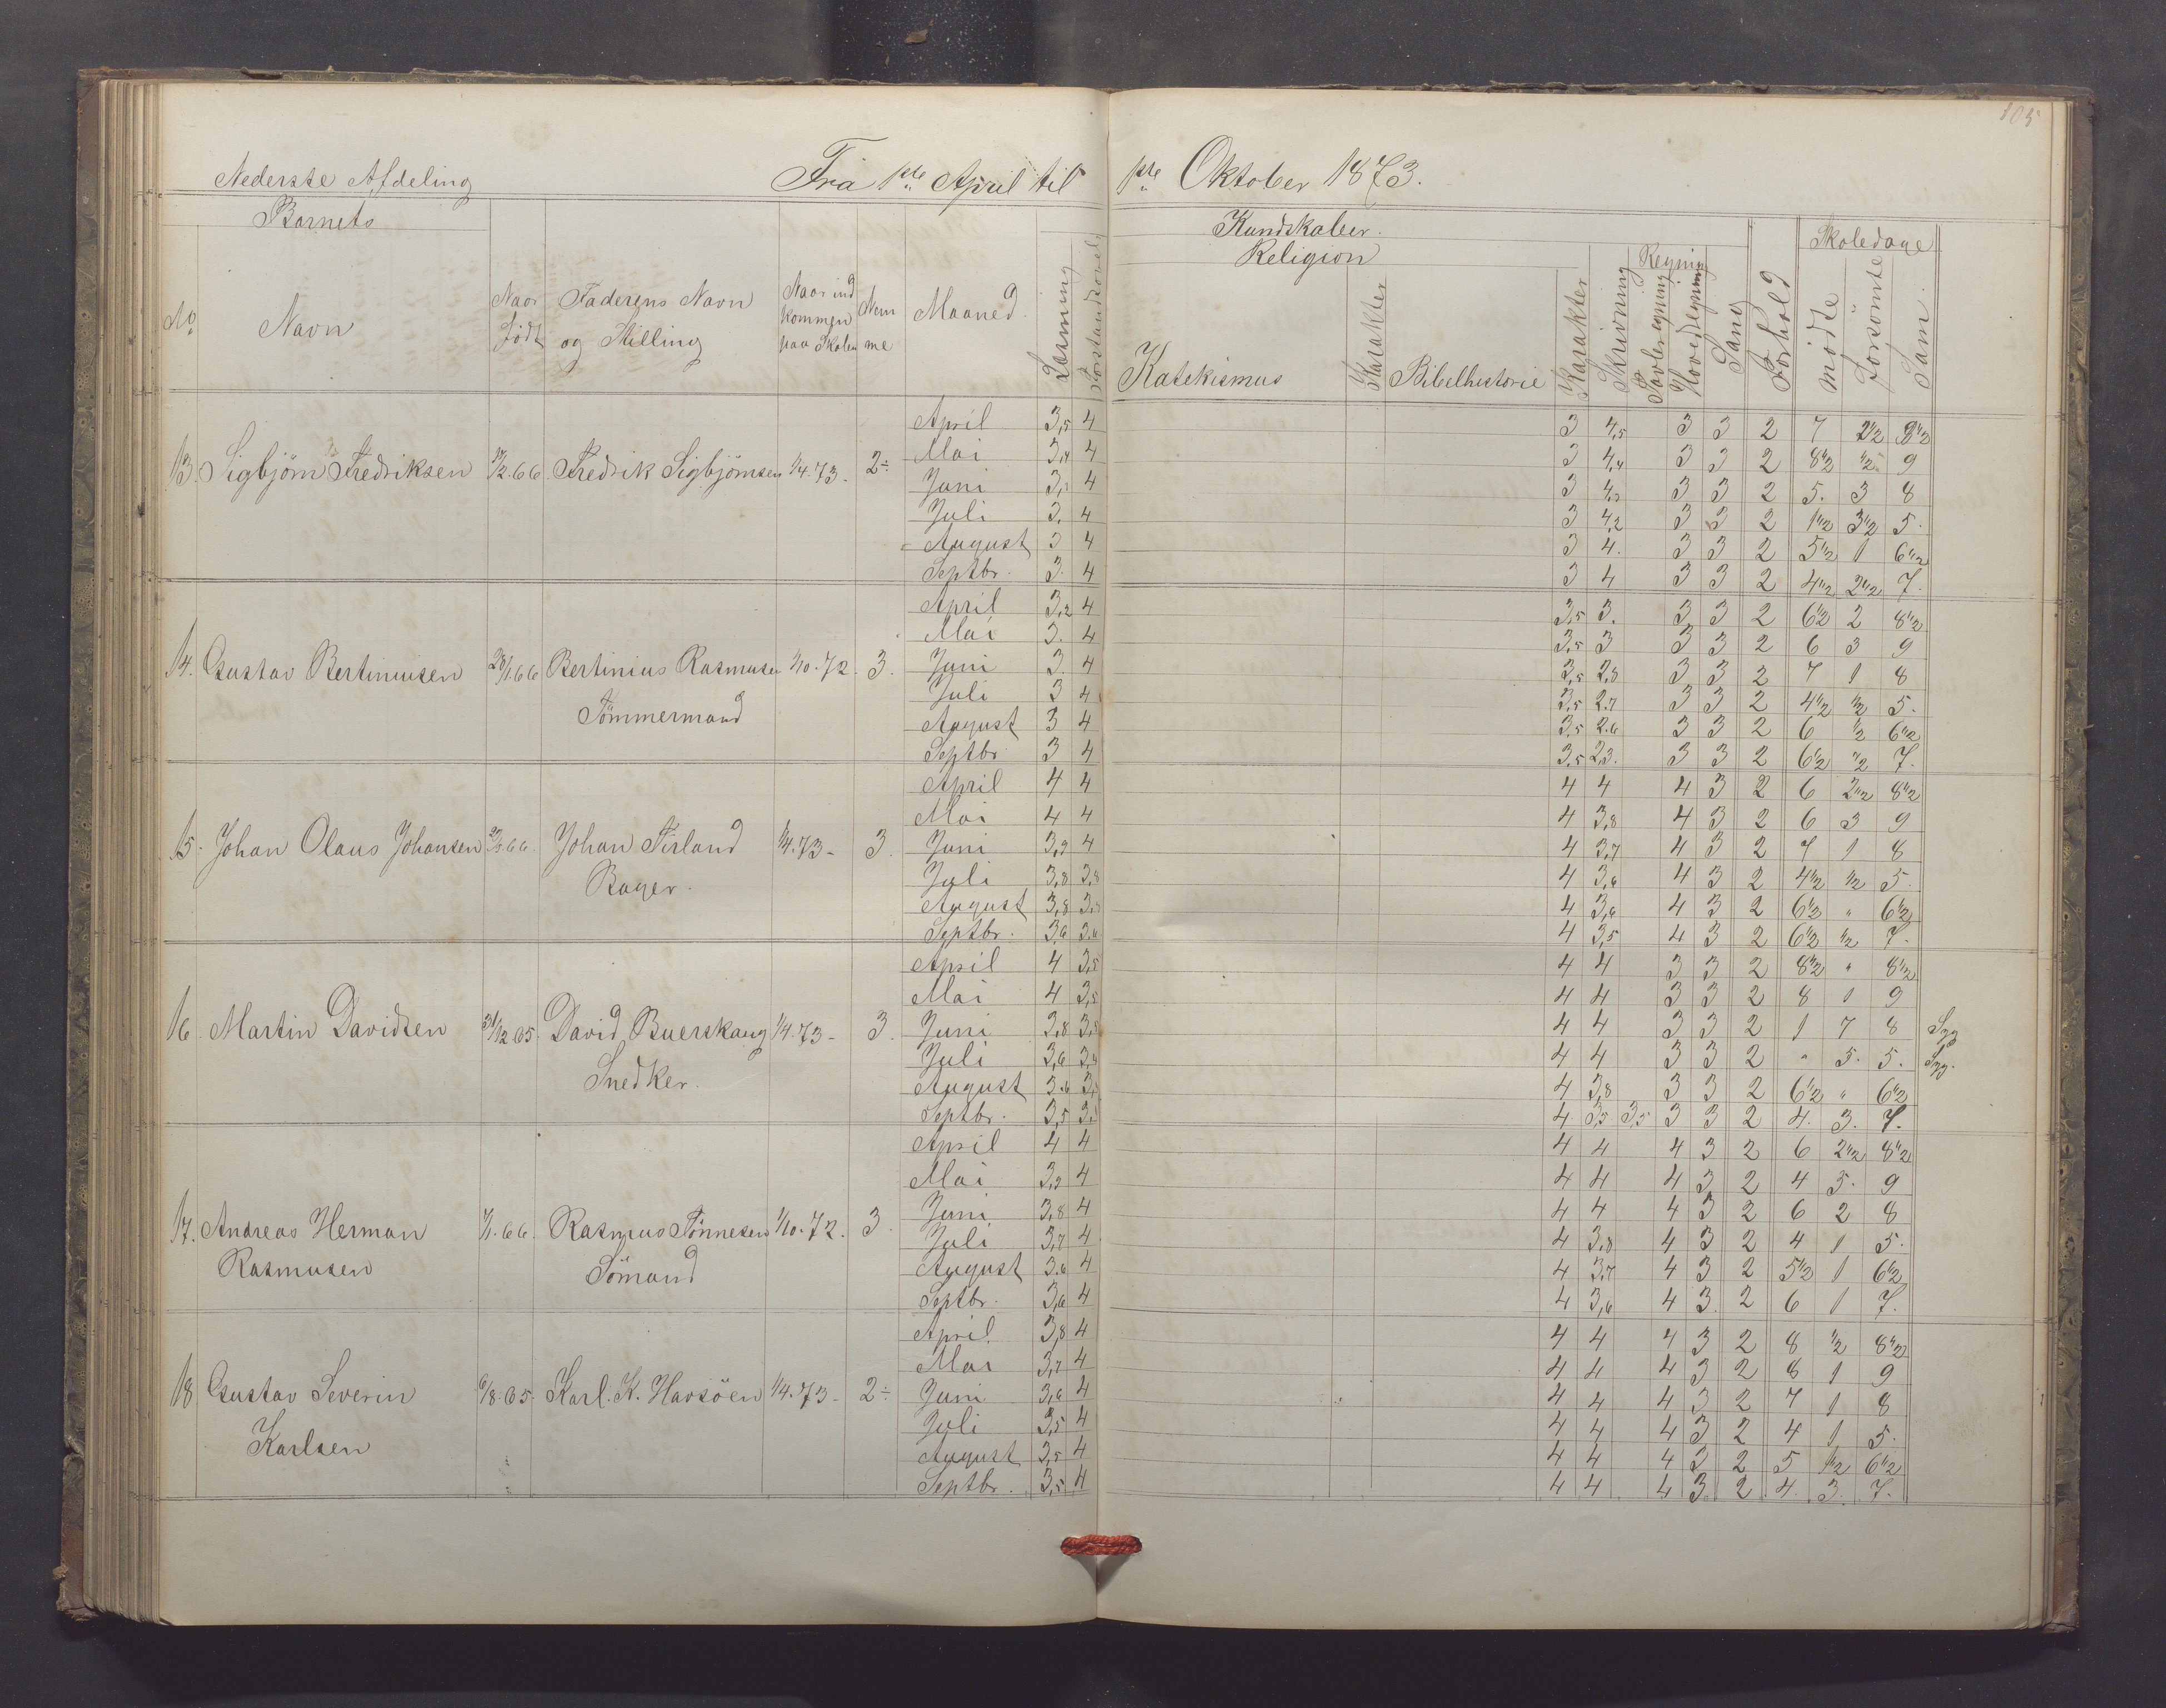 105
Nederste Afdeling Fra 1ste April til 1ste Oktober 1873.
Barnets Kundskaber. Skoledage
Religion Regning
No Navn Naar født Faderens Navn og Stilling Naar ind kommen paa Skolen Nem me Maaned Læsning Forstandsøvelse Katekismus Karakter Bibelhistorie Karakter Skrivning Tavleregning Hovedregning Sang Forhold mødte Forsömte Sum.
April 3,5 4 3 4,5 3 3 2 7 8 1/2
Mai 3,4 4 3 4,4 3 3 2 8 1/2 1/2 9
13. Sigbjörn Fredriksen 2.66 Fredrik Sigbjörnsen 1/4.73. 2÷
Juni 4 3 3 3 2 5. 3 8
Juli 3. 4 3 4,2 3 3 2 1 1/2 3 1/2 5.
August 3 4 3 4. 3 3 2 5 1/2 1 6 1/2
Septbr. 3. 4 3 4 3 3 2 4 1/2 2 1/2 7.
April 3,2 4 3,5 3. 3 3 2 6 1/2 2 8 1/2
Mai 3. 4 3,5 3 3 3 2 6 3 9
14. Gustav Bertiniusen 28/1.66 Bertinius Rasmusen 1/10.72. 3. Juni 3. 4 3,5 2,8 3 3 2 7 1 8
Juli 3 4 3,5 2.7 3 3 2 4 1/2 1/2 5.
Tömmermand August 3 4 3,5 2.6 3 3 2 6 1/2 6 1/2
Septbr 3 4 3,5 2,3. 3 3 2 6 1/2 1/2 7.
April 4 4 4 4 4 3 2 6 2 1/2 8 1/2
Mai 4 4 4 3,8 4 3 2 6 3 9
15. Johan Olaus Johansen Johan Tirland 1/4.73- 3. Juni 3,9 4 4 3,7 4 3 2 7 1 8
Bager. Juli 3,8 3,8 4 3,6 4 3 2 4 1/2 1/2 5.
August 3,8 4 3,6 4 3 2 6 1/2 " 6 1/2
Septbr. 3,6 3.6 4 3,5 4 3 2 6 1/2 1/2 7.
April 4 3,5 4 4 3 3 2 8 1/2 " 8 1/2
Mai 4 3,5 4 4 3 3 2 8 1 9
16. Martin Davidsen 31/12 65. David Buerskaug 1/4.73- 3. Juni 3,8 4 4 3 3 2 1 7 8 Syg
Snedker. Juli 3,6 4 4 3 3 2 " 5. 5. Syg.
August 3.6 4 3,8 3 3 2 6 1/2 " 6 1/2
Septbr. 3,5 4 3,5 3,5 3 3 2 4. 3. 7.
April 4 4 4 4 4 3 2 6 2 1/2 8 1/2
Mai 3,9 4 4 4 4 3 2 4 5. 9
17. Andreas Herman 7/1.66. Rasmus Tönnesen 1/10.72. 3 Juni 3,8 4 4 4 4 3 2 6 2 8
Rasmusen Sömand Juli 3,7 4 4 3,8 4 3 2 4 1 5.
August 3.6 4 4 3,7 4 3 2 5 1/2 1 6 1/2
Septbr. 3,6 4 4 3,6 4 3. 2 6 1 7.
April. 3,8 4 4 4 4 3 2 8 1/2 8 1/2
Mai 3,7 4 4 4 4 3 2 8 1 9
18 Gustav Severin 6/8.65. Karl. K. Havsöen 1/4.73- 2÷ Juni 3,6 4 4 4 4 3 2 7 1 8
Juli 3,5 4 4 4 4 3 2 4 1 5.
Karlsen August 3,5 4 4 4 4 3 2 5 1 1/2 6 1/2
Septbr. 3,5 4 4 4 4 3. 2 4. 3. 7.